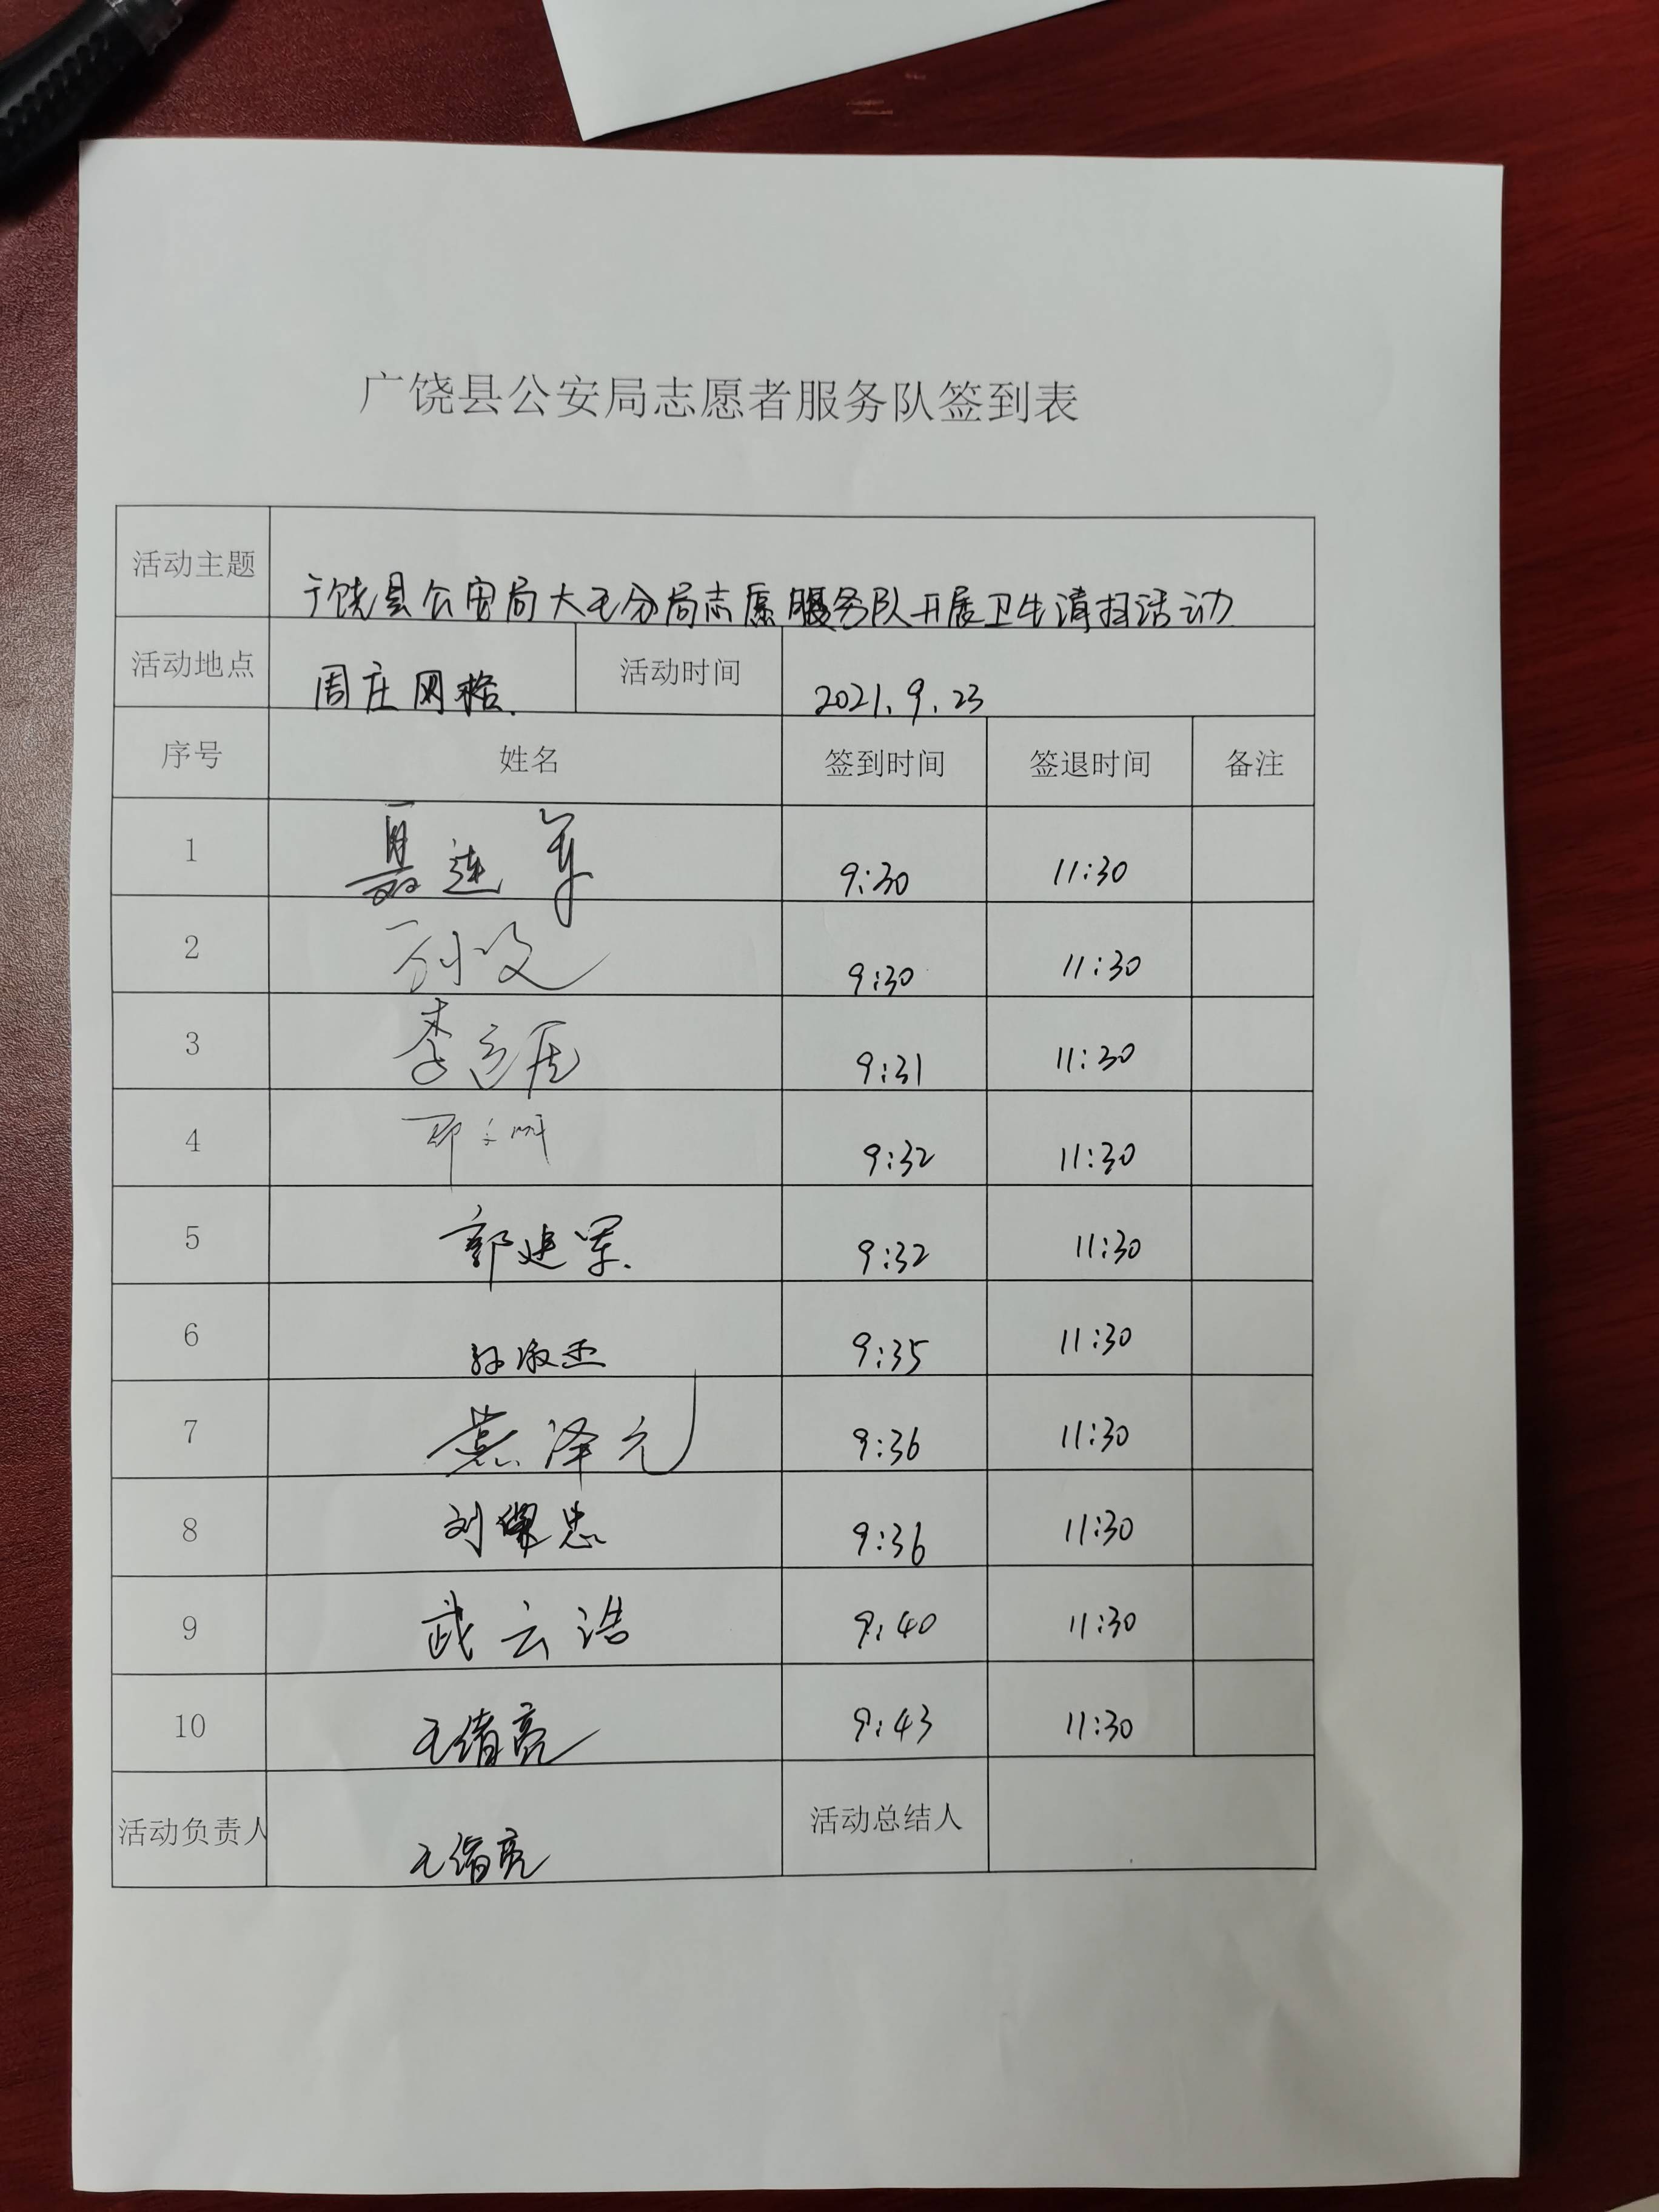 广饶县公安局志愿者服务队签到表
活动主题 广饶县公安局大王分局志愿服务队开展卫生清扫活动
活动地点 周庄网格. 活动时间 2021.9.23
序号 姓名 签到时间 签退时间 备注
1 聂连军 9:30 11:30
2 9:30 11:30
3 李 9:31 11:30
4 9:32 11:30
5 郭建军. 9:32 11:30
6 孙淑杰 9:35 11:30
7 燕泽元 9:36 11:30
8 刘保忠 9:36 11:30
9 武云浩 9:40 11:30
10 王绪亮 9:43 11:30
活动负责人 王绪亮 活动总结人